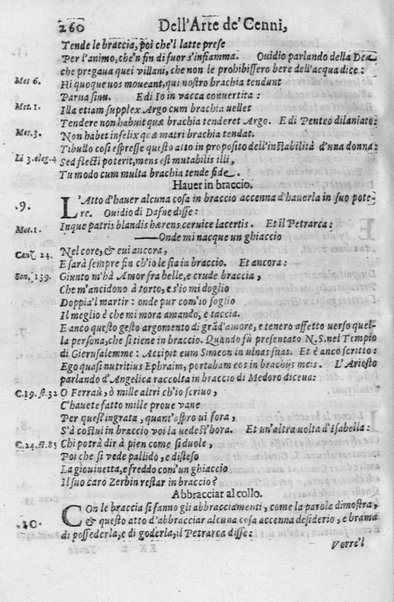 260 Dell'Arte de' Cenni,
Tende le braccia, poi che'l latte prese
Per l'animo, che'n fin di fuor s'infiamma. Ouidio parlando della Dea
Met 6. che pregaua quei villani, che non le prohibissero bere dell'acqua dice:
Hi quoque uos moueant, qui nostro brachia tendunt
Parua sinu. E di Io in vacca conuertita:
Met 1. Illa etiam supplex Argo cum brachia uellet
Tendere non habuit quæ brachia tenderet Argo. E di Penteo dilaniato:
Met. 3. Non habet infelix quæ matri brachia tendat.
Tibullo così espresse questo atto in proposito dell'instabilità d'una donna:
Li 3. aleg. 4 Sed flecti poterit, mens est mutabilis illi,
Tu modo cum multa brachia tende fide.
Hauer in braccio.
.9. L'Atto d'hauer alcuna cosa in braccio accenna d'hauerla in suo pote-
re. Ouidio di Dafne disse:
Met. 1. Inque patris blandis harens ceruice lacertis. Et il Petrarca:
—Onde mi nacque un ghiaccio
Canz. 24. Nel core, & eui ancora,
E sarà sempre fin ch'io le sia in braccio. Et ancora:
Son. 139. Giunto m'hà Amor fra belle, e crude braccia,
Che m'ancidono à torto, e s'io mi doglio
Doppia'l martir: onde pur com'io soglio
Il meglio è che mi mora amando, e taccia.
E anco questo gesto argomento di grād'amore, e tenero affetto uerso quel-
la persona, che si tiene in braccio. Quando fù presentato N.S. nel Tempio
di Gierusalemme: Accipit eum Simeon in ulnas suas. Et è anco scritto:
Ego quasi nutritius Ephraim, portabam eos in brachijs meis. L'Ariosto
parlando d'Angelica raccolta in braccio di Medoro diceua:
C.19. st. 32 O Ferraù, ò mille altri ch'io scriuo,
C'hauete fatto mille proue vane
Per quest'ingrata, quant'aspro ui fora,
S'à costui in braccio voi la uedest'hora. Et un'altra uolta d'Isabella:
C.24. st. 85 Chi potrà dir à pien come si duole,
Poi che si vede pallido, e disteso
La giouinetta, e freddo com'un ghiaccio
Il suo caro Zerbin restar in braccio?
Abbracciar al collo.
.10. COn le braccia si fanno gli abbracciamenti, come la parola dimostra,
& questo atto d'abbracciar alcuna cosa accenna desiderio, e brama
di possederla, e di goderla, il Petrarca disse:
Vorre'l